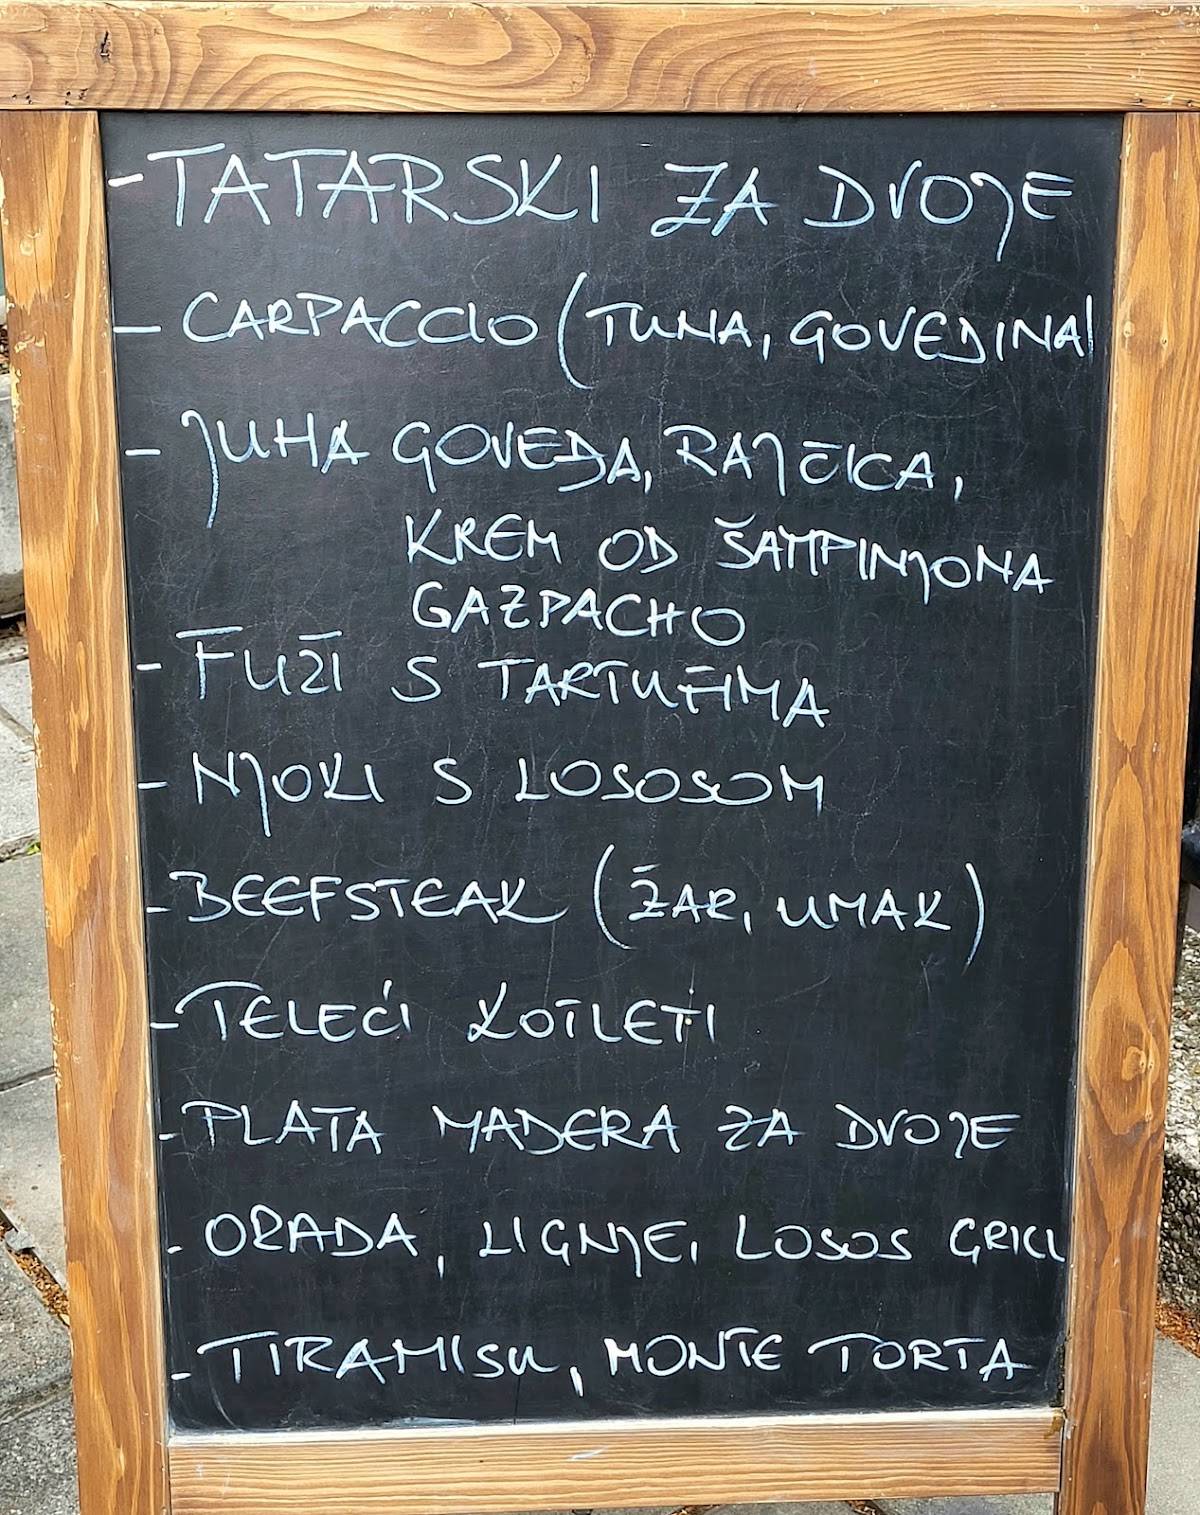 - TATARSKI ZA DVOJE
- CARPACCIO (TUNA, GOVEDINA)
- JUHA GOVEĐA, RAJČICA,
KREM OD ŠAMPINJONA
GAZPACHO
- FUŽI S TARTUFIMA
- NJOKI S LOSOSOM
- BEEFSTEAK (ŽAR, UMAK)
- TELEĆI KOTLETI
- PLATA MADERA ZA DVOJE
- ORADA, LIGNJE, LOSOS GRILL
- TIRAMISU, MONTE TORTA